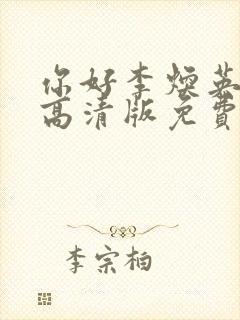 你好李焕英
高清版免費
李宗柏